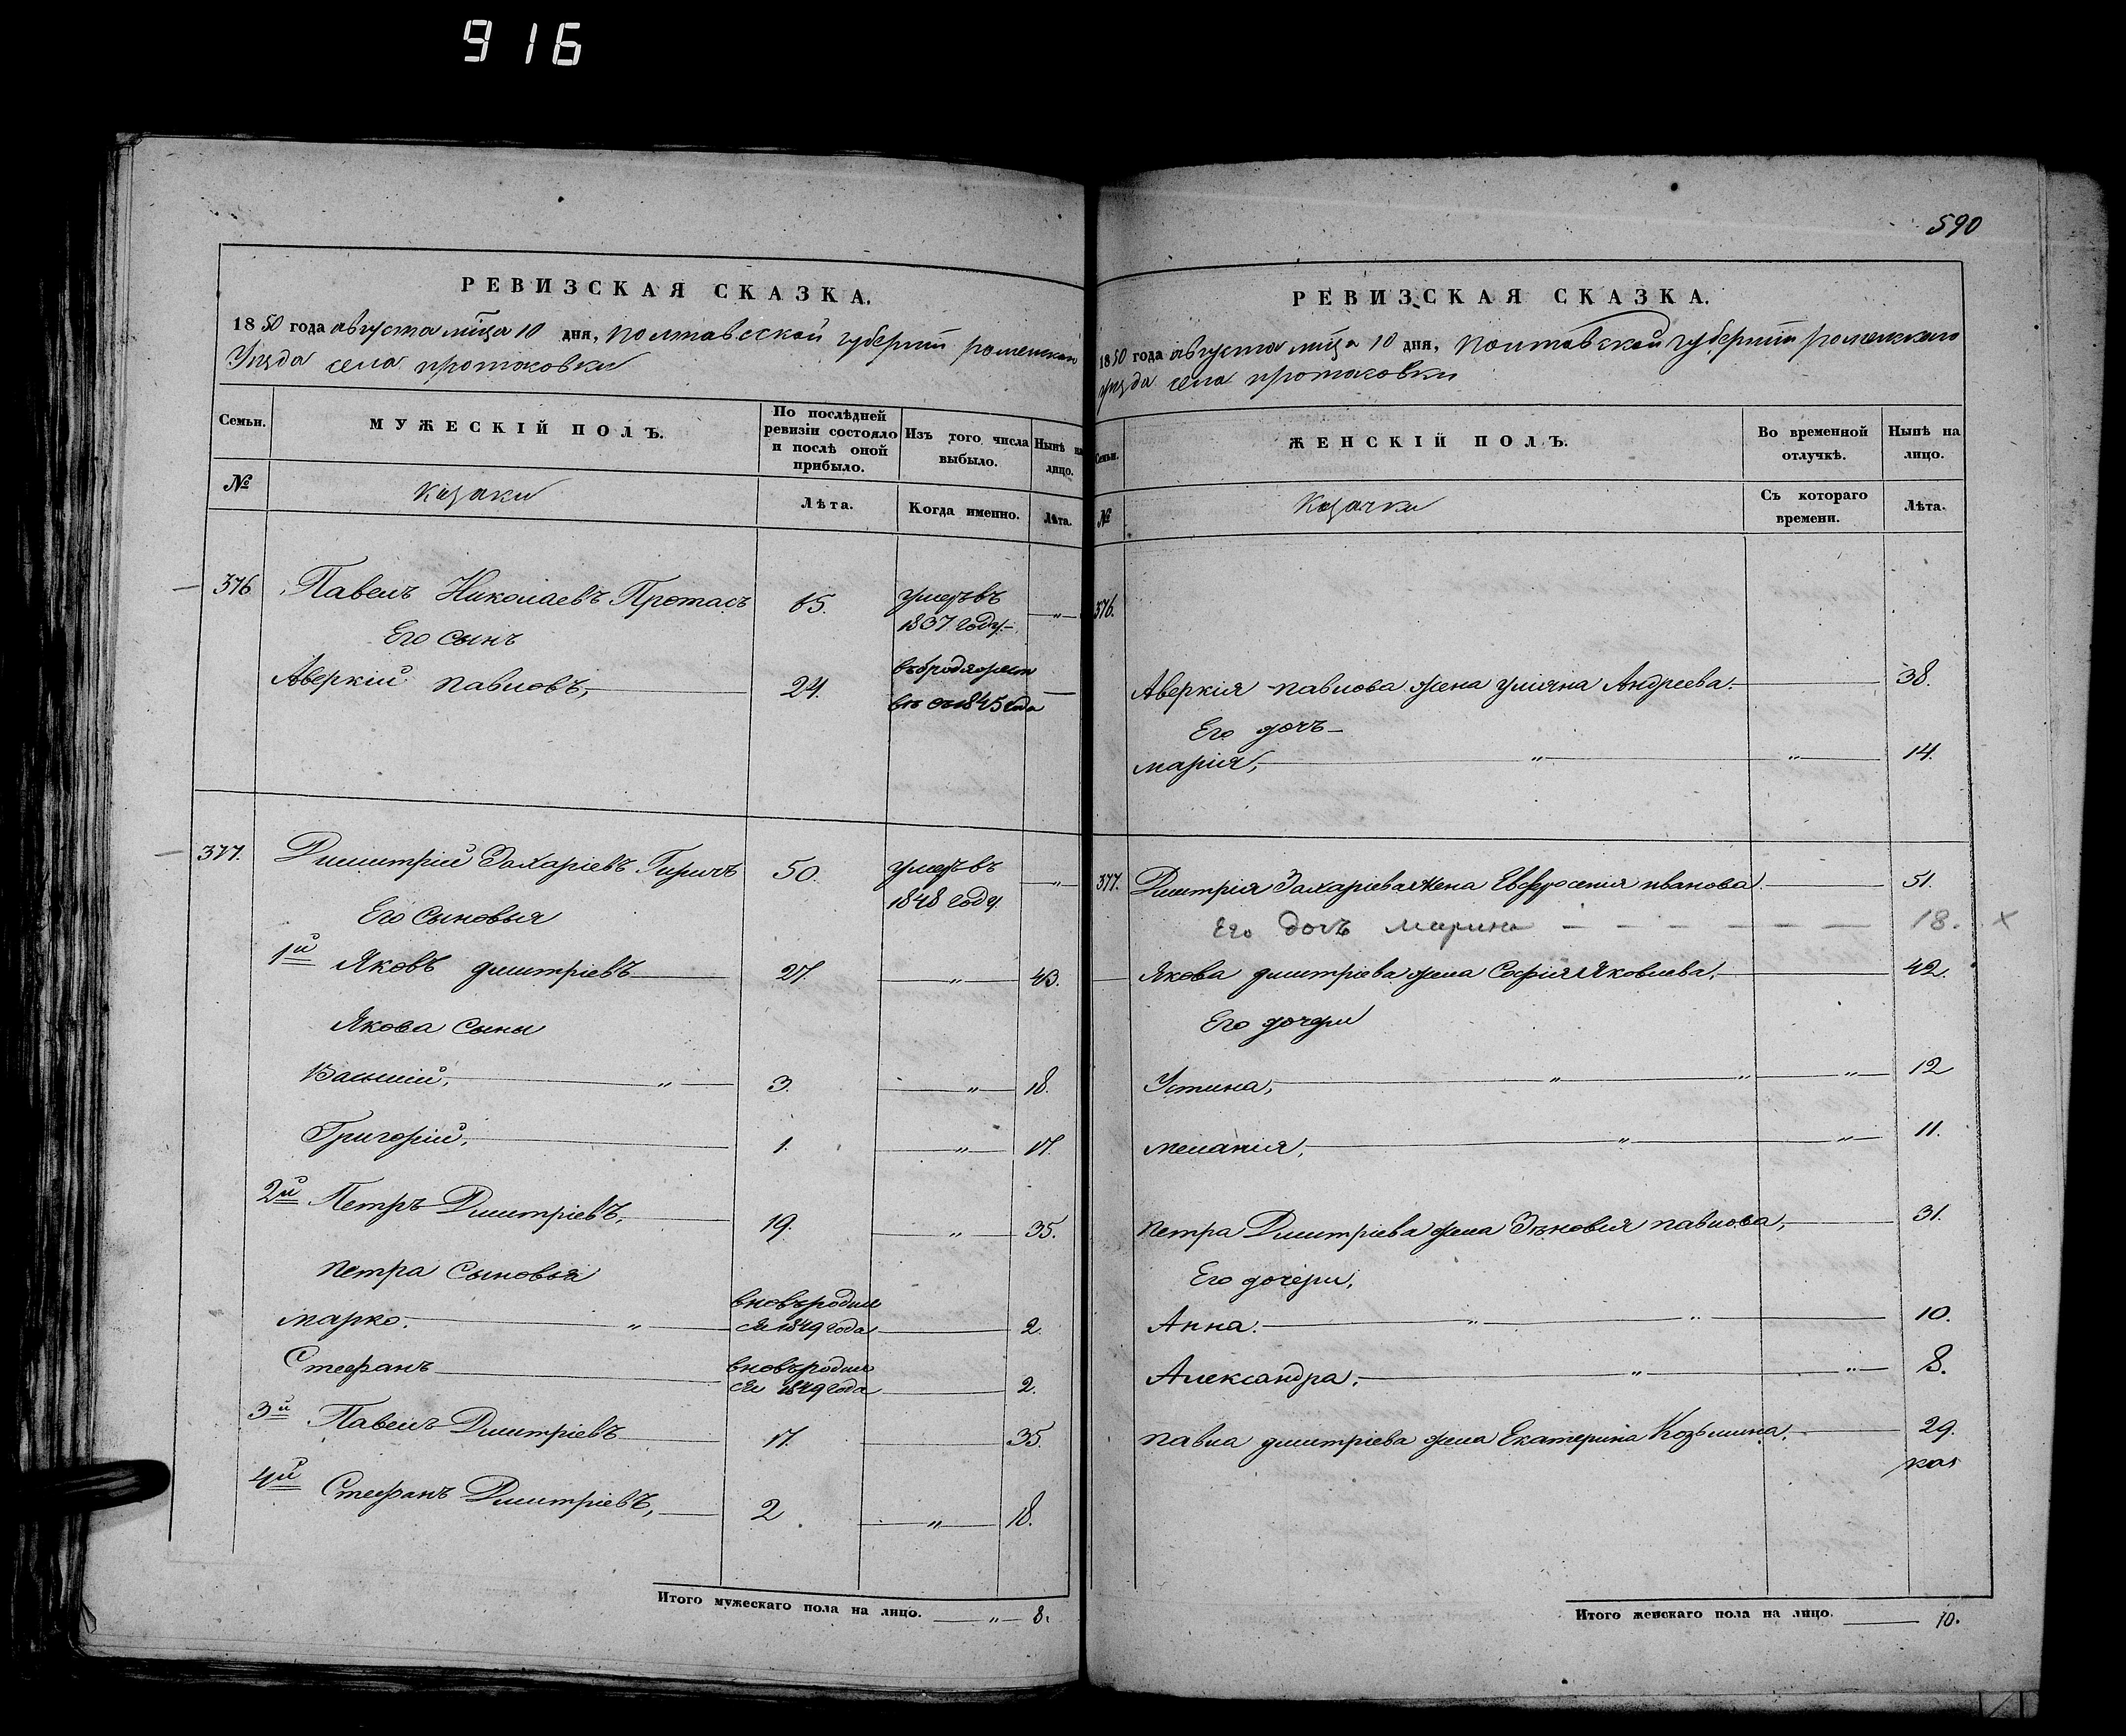 916
РЕВИЗСКАЯ СКАЗКА.
1850 года августа мца 10 дня, Полтавсской губернии роменскаго
Уезда села протасовки
Семьи.
МУЖЕСКІЙ ПОЛЪ.
По послѣдней ревизіи состояло и послѣ оной прибыло.
Изъ того числа выбыло.
Нынѣ на лицо.
№
Казаки
Лѣта.
Когда именно.
Лѣта.
376. Павелъ Николаевъ Протасъ 65. умеръ въ
1837 году.
Его сынъ
Аверкій павловъ, 24. въ бродяжест
вѣ съ 1845 года
377. Димитрій Захаріевъ Гиричъ 50. умеръ въ
1848 году.
Его Сыновья
1й Яковъ дмитріевъ 27. " 43.
Якова Сыны
Василій, " 3. " 18.
Григорій, 1. " 17.
2й Петръ Дмитріевъ, 19. " 35.
петра Сыновья
марко. " вновь родил
ся 1849 года 2.
Стефанъ вновь родил
ся 1849 года 2.
3й Павелъ Дмитріевъ 17. 35.
4й Стефанъ Дмитріевъ, 2 " 18.
Итого мужескаго пола на лицо. " 8.
590
РЕВИЗСКАЯ СКАЗКА.
1850 года августа мца 10 дня, Полтавской губернии роменскаго
уезда села протасовки
Семьи.
ЖЕНСКІЙ ПОЛЪ.
Во временной отлучкѣ.
Нынѣ на лицо.
№
Казачки
Съ котораго времени.
Лѣта.
376.
Аверкія павлова жена уліяна Андреева. 38.
Его дочь
марія, " " 14.
377. Дмитрія Захаріева жена Евфросенія иванова 51.
Его дочь Марина 18. x
Якова дмитріева жена Софія Яковлева. 42.
Его дочери
Устина, " " " 12
меланія, " " 11.
петра Дмитріева жена Зѣновія павлова, 31.
Его дочери,
Анна. " " 10.
Александра. " " 8.
павла дмитріева жена Екатерина Козьмина. 29.
Итого женскаго пола на лицо. 10.